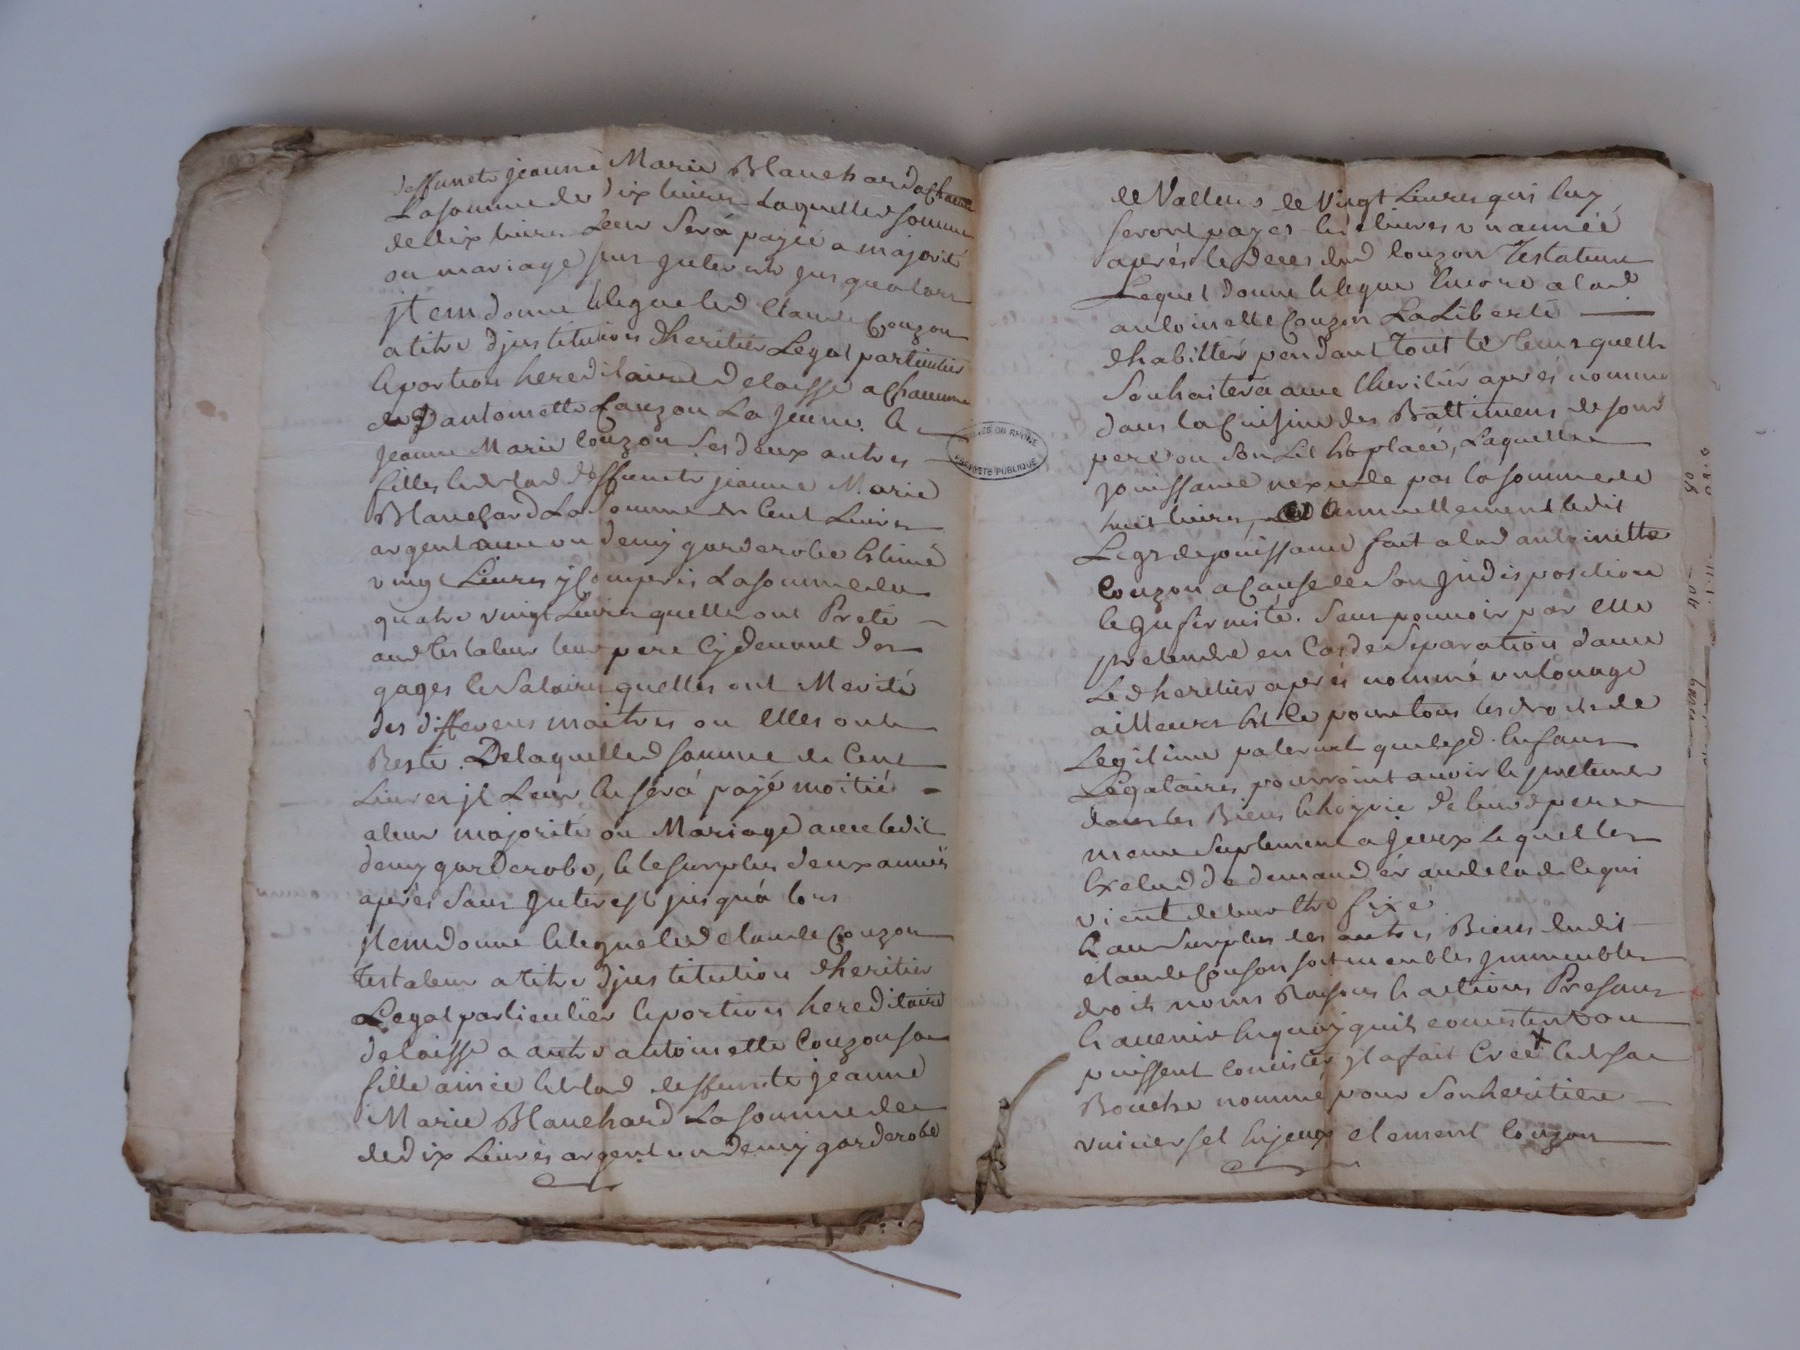 deffuncte jeanne Marie Blanchard a Chacune
La somme de dix livres Laquelle somme
de dix livres Leur Será payée a majorité
ou mariage sans Interests jusqu'alors
jtem donne & legue led Claude Couzon
a titre djnstitution dheritier Legat particulier
& portion hereditaire Delaissé a Chacune
de antoinette Couzon La jeune &
jeanne Marie Couzon Ses deux autres
filles & de lad deffuncte jeanne Marie
Blanchard La Somme de Cent Livres
argent avec un demy garderobe Estimé
vingt Livres y Compris La somme de
quatre vingt Livres quelle ont Preté
aud testateur leur pere Cydevant des
gages & Salaires quelles ont Merité
des differens maitres ou Elles ont
Resté. De laquelle somme de Cent
Livres jl Leur En sérá payé moitié
a leur majorité ou Mariage avec ledit
demy garderobe, & le Surplus deux années
aprés Sans Interest jusquá lors
jtem donne & legue led Claude Couzon
testateur a titre djnstitution dheritier
Legat particulier & portion hereditaire
delaisse a autre antoinette Couzon sa
fille ainée & de lad deffuncte jeanne
Marie Blanchard La Somme de
de dix Livres argent un demy garderobe
ARCHIVES DU RHÔNE
PROPRIÉTÉ PUBLIQUE
de Valleur de Vingt Livres qui luy
seront payes & délivrés un année
aprés le Deces dud Couzon Testateur
Lequel donne & legue Encore a lad
antoinette Couzon La Liberté
dhabitter pendant Tout le tems quelle
Souhaitera avec lheritier aprés nommé
dans la Cuisine des Battimens de son d
pere ou Son Lit & placé, Laquelle
jouissance nexcede pas la somme de
huit livres, annuellement ledit
Legs de jouissance fait a lad antoinette
Couzon a Cause de Son Indisposition
& Infirmité. Sans pouvoir par Elle
pretendre en Cas de Separation davec
Led heritier aprés nommé un louage
ailleurs Et ce pour tous les droits de
Legitime paternel que lesd Enfans
Legataires pourroint avoir & pretendre
dans les Biens & hoyrie de leurd pere
meme Suplement a jceux Lequel les
Exclud de demander au dela de ce qui
vient de leur Etre fixé
& au Surplus des autres Biens dudit
Claude Couson soit meubles Immeubles
droits noms Raisons & actions Presans
& avenir En quoy quils consistent ou
puissent consister jl a fait Créé & de sa
Bouche nommé pour Son heritiere
universel En jceux Clement Couzon